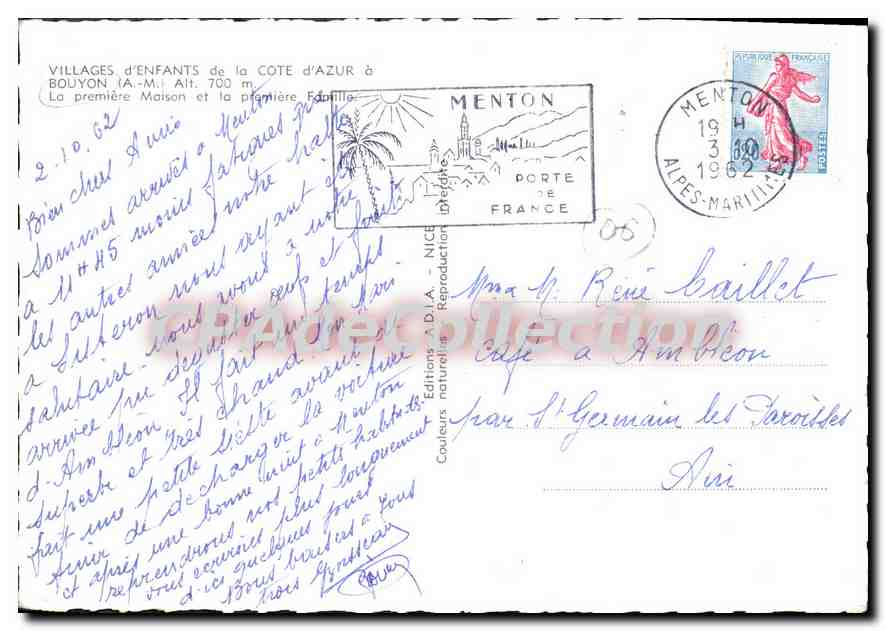 VILLAGES d'ENFANTS de la COTE d'AZUR à
BOUYON (A.-M.) Alt. 700 m.
La première Maison et la première Famille.
MENTON
PORTE
DE
FRANCE
MENTON
19 H
3-10
1962
ALPES-MARITIMES
REPUBLIQUE FRANÇAISE
0,20
POSTES
2.10.62
Bien chers Amis
Sommes arrivés à Menton
à 11H45 moins fatigués que
les autres années notre halte
à Sisteron nous ayant été
salutaire. nous vous à notre
arrivée pu déguster œufs et
d'Ambléon Il fait un temps
superbe et très chaud Son Mari
fait une petite sieste avant
finir de décharger la voiture
et après une bonne nuit à Menton
reprendrons nos petites habitudes.
vous écrirons plus longuement
d'ici quelques jours
Bons baisers à tous
trois
Editions A.D.I.A. - NICE
Couleurs naturelles Reproduction interdite
06
Mme M. René Caillet
café à Ambléon
par St Germain les Paroisses
Ain
CPAdeCollection